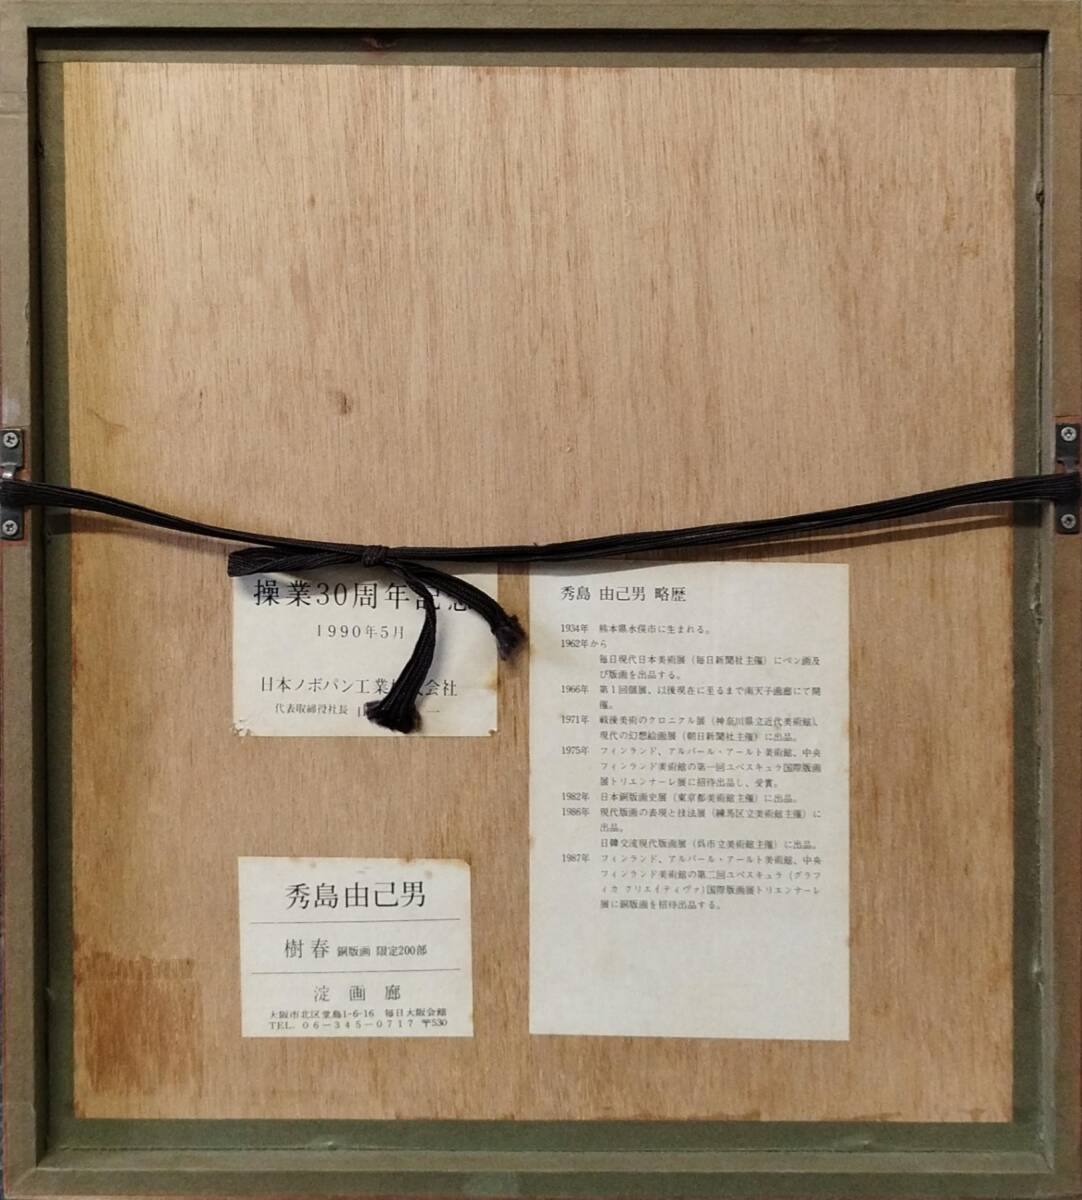 操業30周年記念
1990年5月
日本ノボパン工業株式会社
代表取締役社長
秀島由己男
樹春 銅版画 限定200部
淀画廊
大阪市北区堂島1-6-16 毎日大阪会館
TEL. 06-345-0717 〒530
秀島 由己男 略歴
1934年 熊本県水俣市に生まれる。
1962年から
毎日現代日本美術展（毎日新聞社主催）にペン画及
び版画を出品する。
1966年 第1回個展、以後現在に至るまで南天子画廊にて開
催。
1971年 戦後美術のクロニクル展（神奈川県立近代美術館）、
現代の幻想絵画展（朝日新聞社主催）に出品。
1975年 フィンランド、アルバール・アールト美術館、中央
フィンランド美術館の第一回ユベスキュラ国際版画
展トリエンナーレ展に招待出品し、受賞。
1982年 日本銅版画史展（東京都美術館主催）に出品。
1986年 現代版画の表現と技法展（練馬区立美術館主催）に
出品。
日韓交流現代版画展（呉市立美術館主催）に出品。
1987年 フィンランド、アルバール・アールト美術館、中央
フィンランド美術館の第二回ユベスキュラ（グラフ
ィカ クリエイティヴァ）国際版画展トリエンナーレ
展に銅版画を招待出品する。